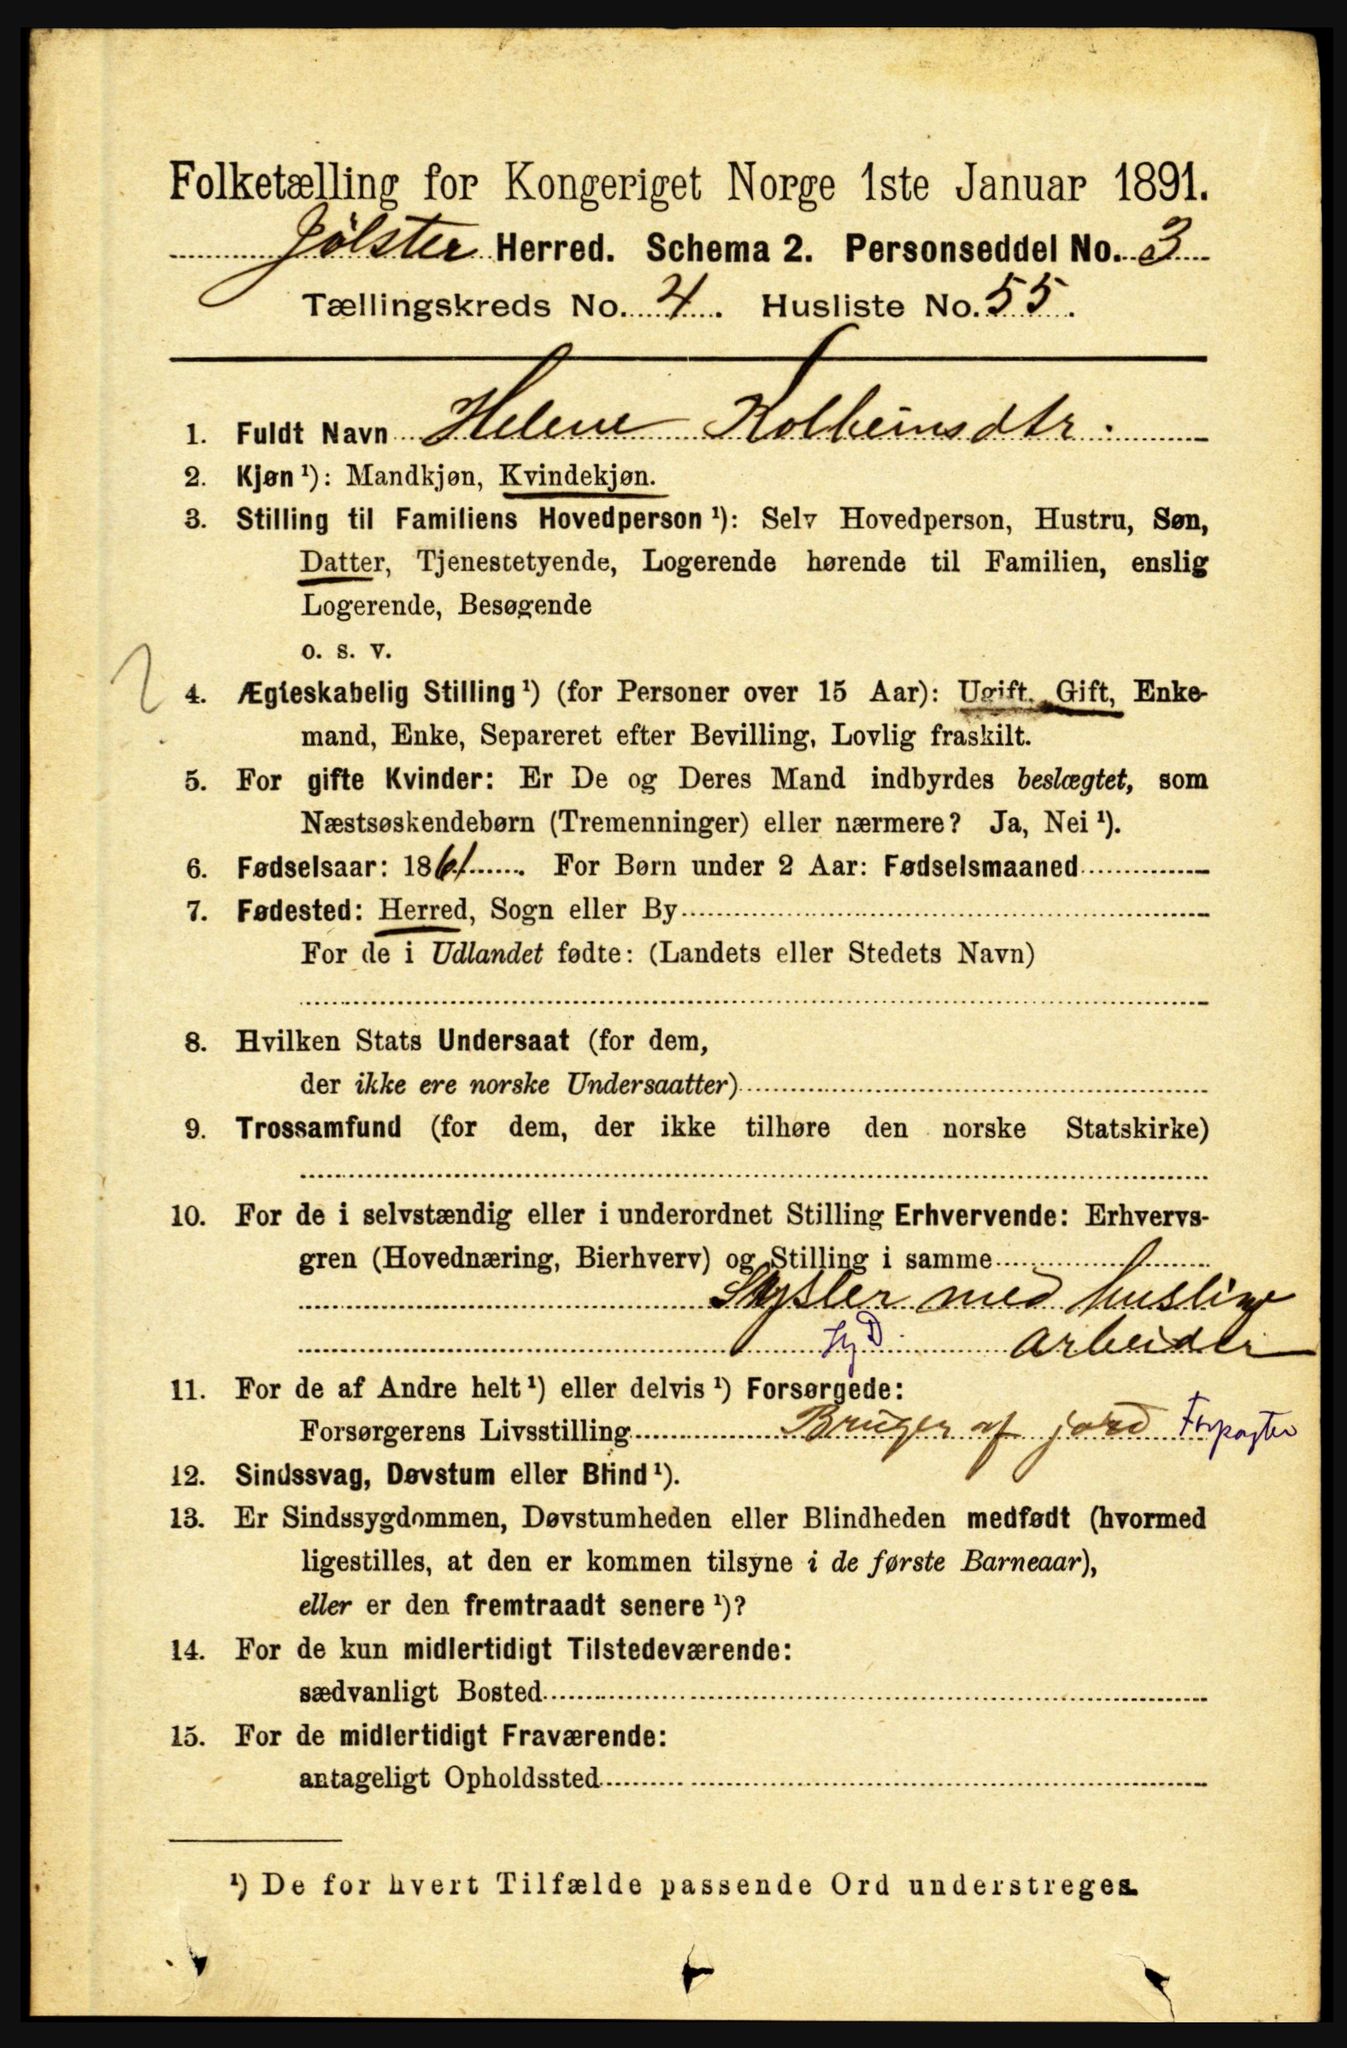 Folketælling for Kongeriget Norge 1ste Januar 1891.
Jølster Herred. Schema 2. Personseddel No. 3
Tællingskreds No. 4. Husliste No. 55.
1. Fuldt Navn Helene Kolbeinsdtr.
2. Kjøn ¹): Mandkjøn, Kvindekjøn.
3. Stilling til Familiens Hovedperson ¹): Selv Hovedperson, Hustru, Søn,
Datter, Tjenestetyende, Logerende hørende til Familien, enslig
Logerende, Besøgende
o. s. v.
2
4. Ægteskabelig Stilling ¹) (for Personer over 15 Aar): Ugift, Gift, Enke-
mand, Enke, Separeret efter Bevilling, Lovlig fraskilt.
5. For gifte Kvinder: Er De og Deres Mand indbyrdes beslægtet, som
Næstsøskendebørn (Tremenninger) eller nærmere? Ja, Nei ¹).
6. Fødselsaar: 1861. For Børn under 2 Aar: Fødselsmaaned
7. Fødested: Herred, Sogn eller By
For de i Udlandet fødte: (Landets eller Stedets Navn)
8. Hvilken Stats Undersaat (for dem,
der ikke ere norske Undersaatter)
9. Trossamfund (for dem, der ikke tilhøre den norske Statskirke)
10. For de i selvstændig eller i underordnet Stilling Erhvervende: Erhvervs-
gren (Hovednæring, Bierhverv) og Stilling i samme
Sysler med huslige
arbeider
11. For de af Andre helt ¹) eller delvis ¹) Forsørgede:
Forsørgerens Livsstilling Bruger af jord Forpagter
12. Sindssvag, Døvstum eller Blind ¹).
13. Er Sindssygdommen, Døvstumheden eller Blindheden medfødt (hvormed
ligestilles, at den er kommen tilsyne i de første Barneaar),
eller er den fremtraadt senere ¹)?
14. For de kun midlertidigt Tilstedeværende:
sædvanligt Bosted
15. For de midlertidigt Fraværende:
antageligt Opholdssted
¹) De for hvert Tilfælde passende Ord understreges.